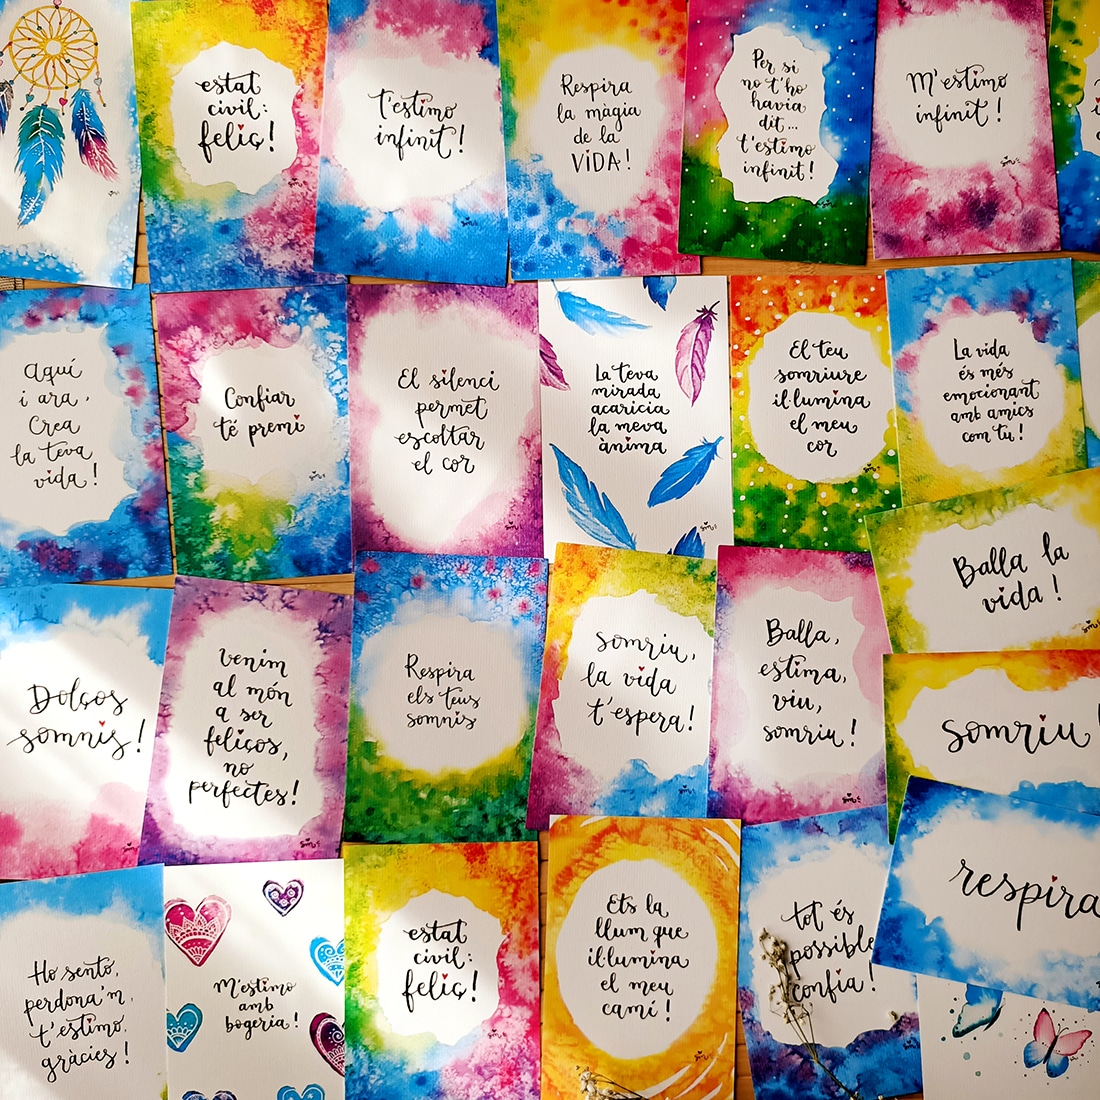 estat
civil:
feliç!
t'estimo
infinit!
Respira
la màgia
de la
VIDA!
Per si
no t'ho
havia
dit...
t'estimo
infinit!
M'estimo
infinit!
Aquí
i ara,
Crea
la teva
vida!
Confiar
té premi
El silenci
permet
escoltar
el cor
La teva
mirada
acaricia
la meva
ànima
El teu
somriure
il·lumina
el meu
cor
La vida
és més
emocionant
amb amics
com tu!
Balla la
vida!
Dolços
somnis!
Venim
al món
a ser
feliços,
no
perfectes!
Respira
els teus
somnis
Somriu,
la vida
t'espera!
Balla,
estima,
viu,
somriu!
Somriu!
respira
Ho sento,
perdona'm,
t'estimo,
gràcies!
M'estimo
amb
bogeria!
estat
civil:
feliç!
Ets la
llum que
il·lumina
el meu
camí!
tot és
possible
confia!